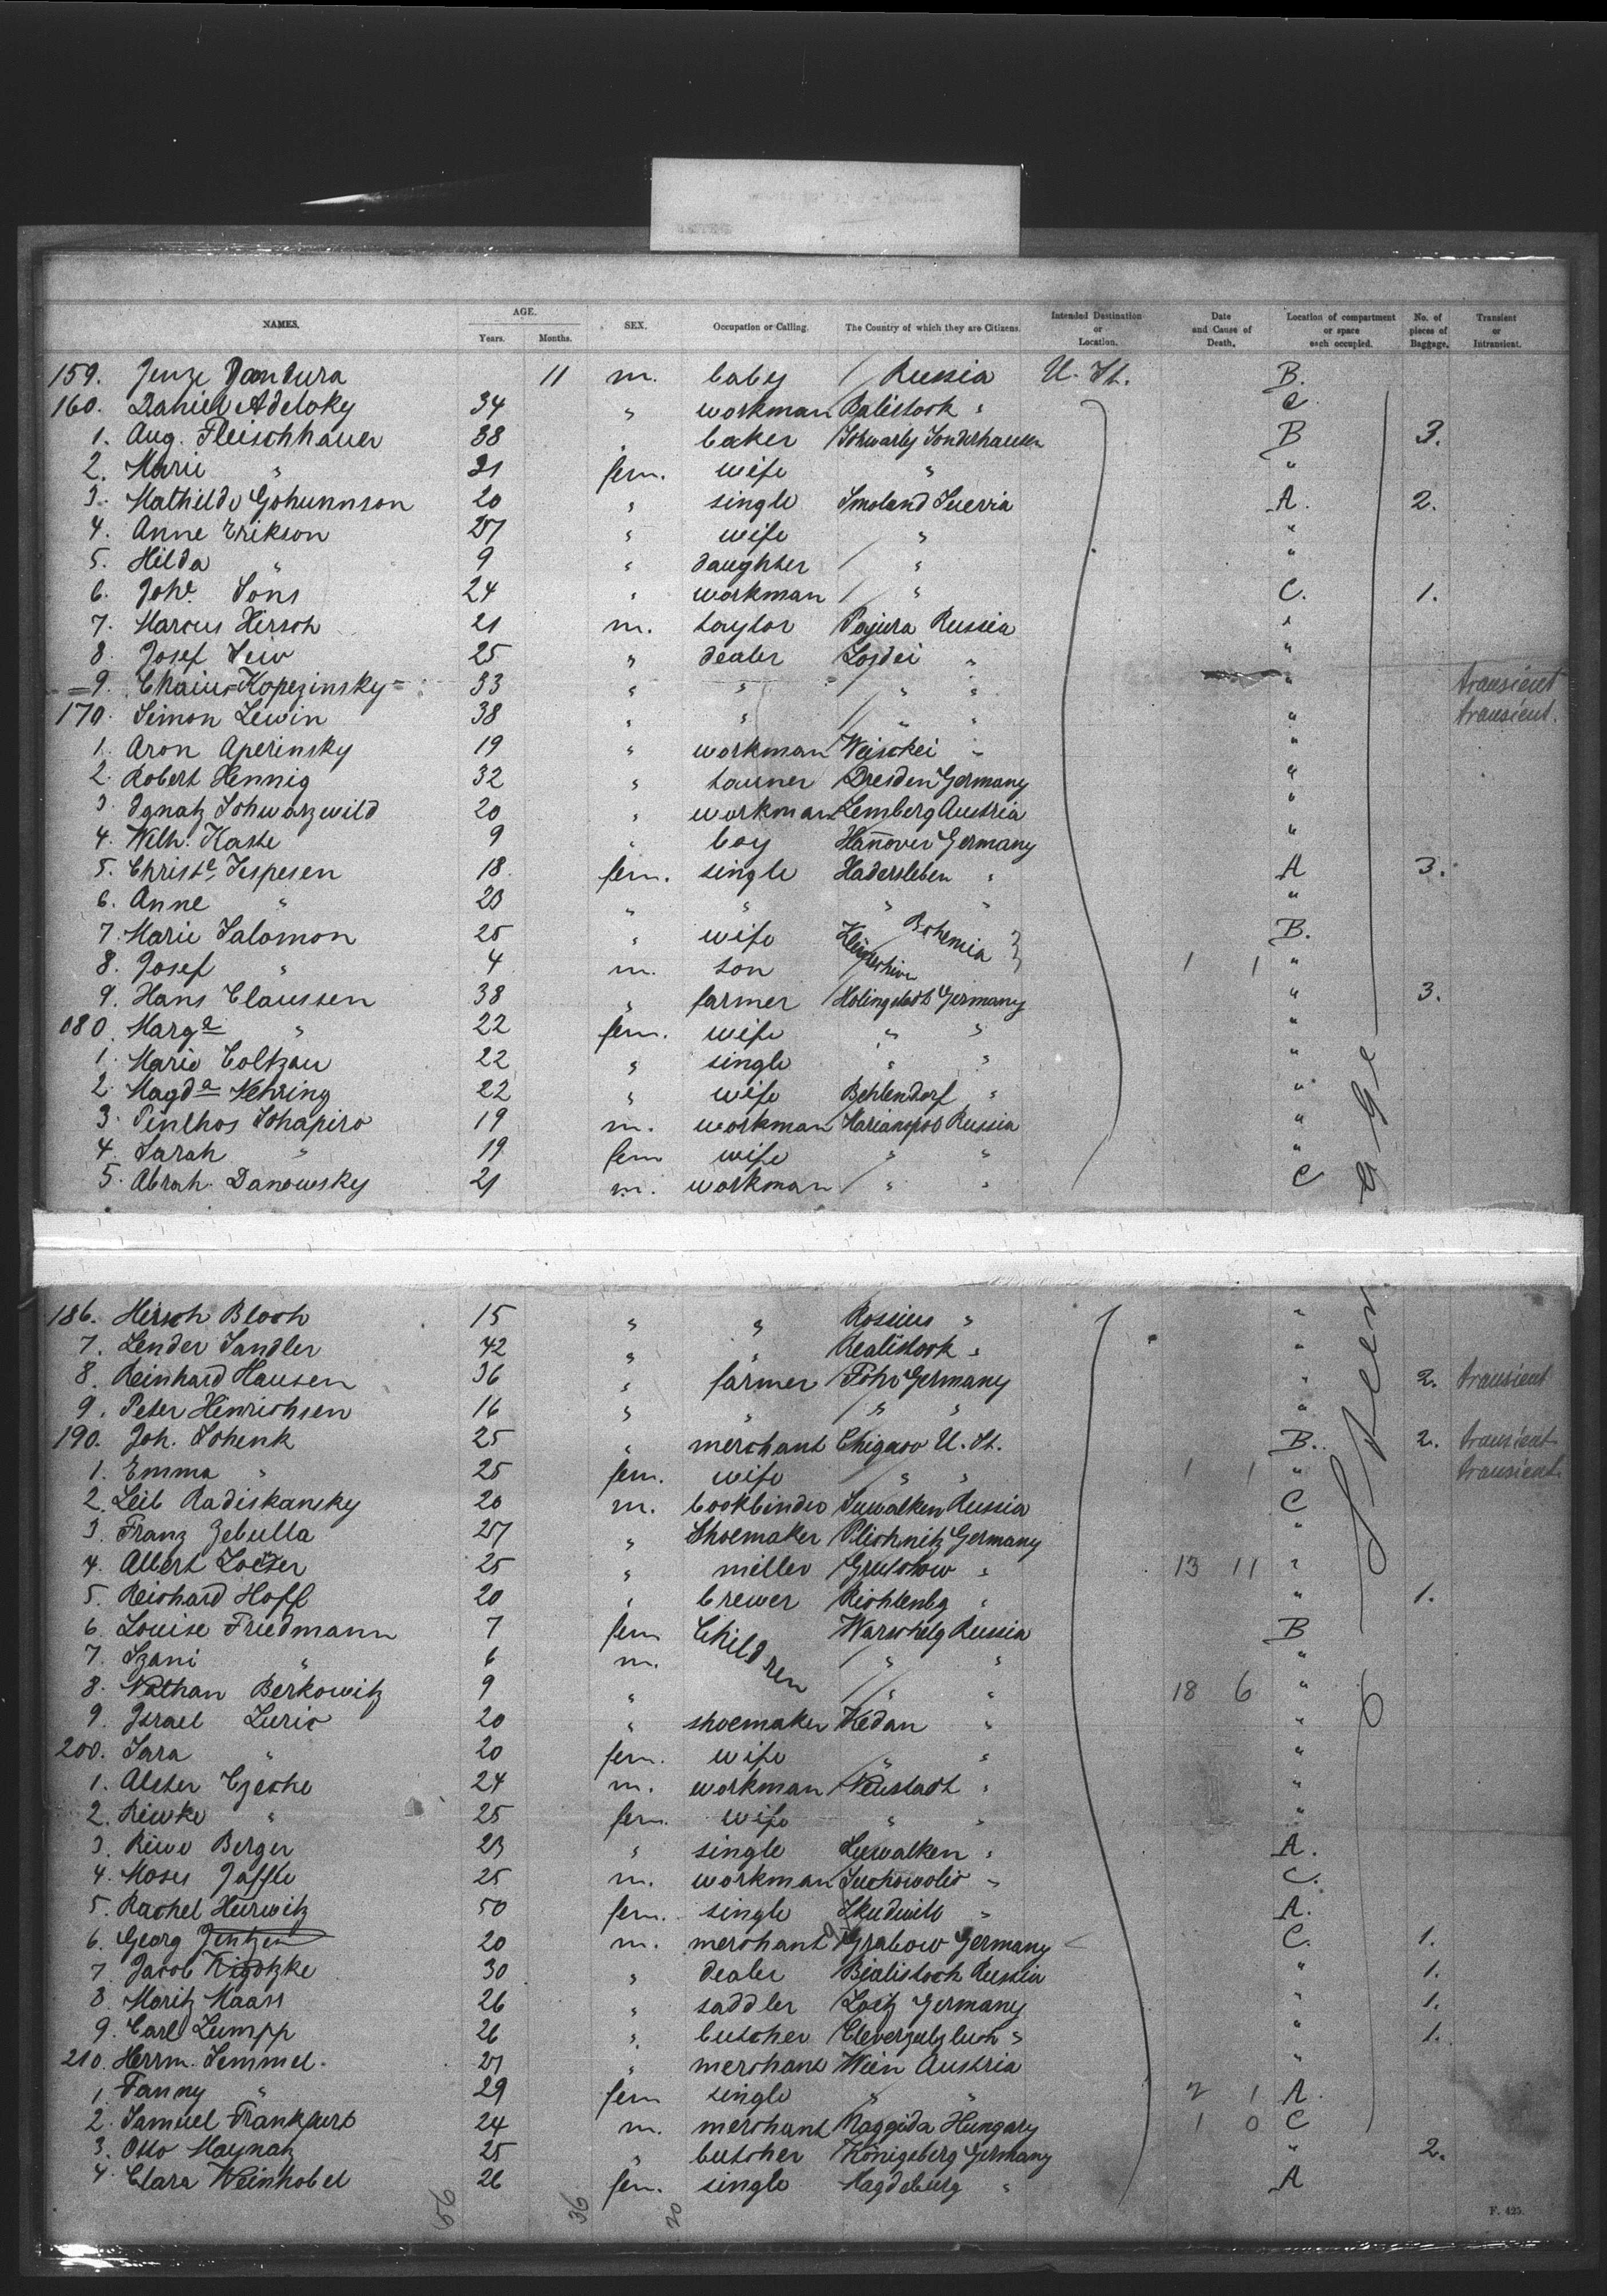 NAMES. AGE. Years. Months. SEX. Occupation or Calling. The Country of which they are Citizens. Intended Destination or Location. Date and Cause of Death. Location of compartment or space each occupied. No. of pieces of Baggage. Transient or Intransient.
159. Jenze Dandura 11 m. baby / Russia U. St. B.
160. Daniel Adeloky 34 " workman Balistock " C.
1. Aug. Fleischhauer 38 " baker Schwarzby Sonderhausen B 3.
2. Marie " 31 fem. wife " "
3. Mathilde Gohunnson 20 " single Smoland Suecia A. 2.
4. Anne Erikson 27 " wife " "
5. Hilda " 9 " daughter / " "
6. Johe. Sons 24 " workman / " C. 1.
7. Marcus Hirsch 21 m. taylor Pajura Russia "
8. Josef Lew 25 " dealer Losdei " "
9. Chaim Kopezinsky 33 " " / " " " transient
170. Simon Lewin 38 " " / " " " transient.
1. Aron Aperinsky 19 " workman Weisckei " "
2. Robert Hennig 32 " tourner Dresden Germany "
3. Ignatz Schwarzwild 20 " workman Lemberg Austria "
4. Wilh. Kaste 9 " boy Hannover Germany "
5. Christe. Jespesen 18 fem. single Hadersleben " A 3.
6. Anne " 23 " " " " "
7. Marie Salomon 25 " wife Bohemia B.
8. Josef " 4 m. son 1 1 "
9. Hans Claussen 38 " farmer Holingstedt Germany " 3.
080. Marga " 22 fem. wife " " "
1. Marie Coltzau 22 " single " " "
2. Magda Nehring 22 " wife Behlendorf " "
3. Pinchos Schapiro 19 m. workman Mariampol Russia "
4. Sarah " 19 fem wife " " "
5. Abrah. Danowsky 21 m. workman / " " C
186. Hirsch Bloch 15 " " Rossius " "
7. Lender Sandler 42 " " Realistock " "
8. Reinhard Hausen 36 " farmer Föhr Germany " 2. transient
9. Peter Hinrichsen 16 " " / " " "
190. Joh. Schenk 25 " merchant Chigaco U. St. B. 2. transient
1. Emma " 25 fem. wife / " " 1 1 " transient.
2. Leib Radiskansky 20 m. bookbinder Suwalken Russia C
3. Franz Zebulla 27 " Shoemaker Plischnitz Germany "
4. Albert Loeser 25 " miller Grutschow " 13 11 "
5. Reichard Hoff 20 " brewer Richtenbg " " 1.
6. Louise Friedmann 7 fem Children Warschelg Russia B
7. Szani " 6 m. / " " "
8. Nathan Berkowitz 9 " / " " 18 6 "
9. Israel Luric 20 " shoemaker Kedan " "
200. Sara " 20 fem. wife " " "
1. Alster Czeche 24 m. workman Neustadt " "
2. Riwke " 25 fem. wife " " "
3. Riwe Berger 23 " single Suwalken " A.
4. Moses Jaffe 25 m. workman Suchowolie " C.
5. Rachel Hurwitz 50 fem. single Skudwile " A.
6. Georg Jentzen 20 m. merchant Grabow Germany C. 1.
7. Jacob 30 " dealer Bialistoch Russia " 1.
8. Moritz Maass 26 " saddler Loitz Germany " 1.
9. Carl Lumpp 26 " butcher Cleverzulzbach " " 1.
210. Herrm. Semmel. 27 " merchant Wien Austria "
1. Fanny " 29 fem single " " 2 1 A.
2. Samuel Frankfurt 24 m. merchant Naggida Hungary 1 0 C
3. Otto Maynatz 25 " butcher Königsberg Germany " 2.
4. Clara Weinhobel 26 fem. single Magdeburg " A
Steerage
56 36 20
F. 425.